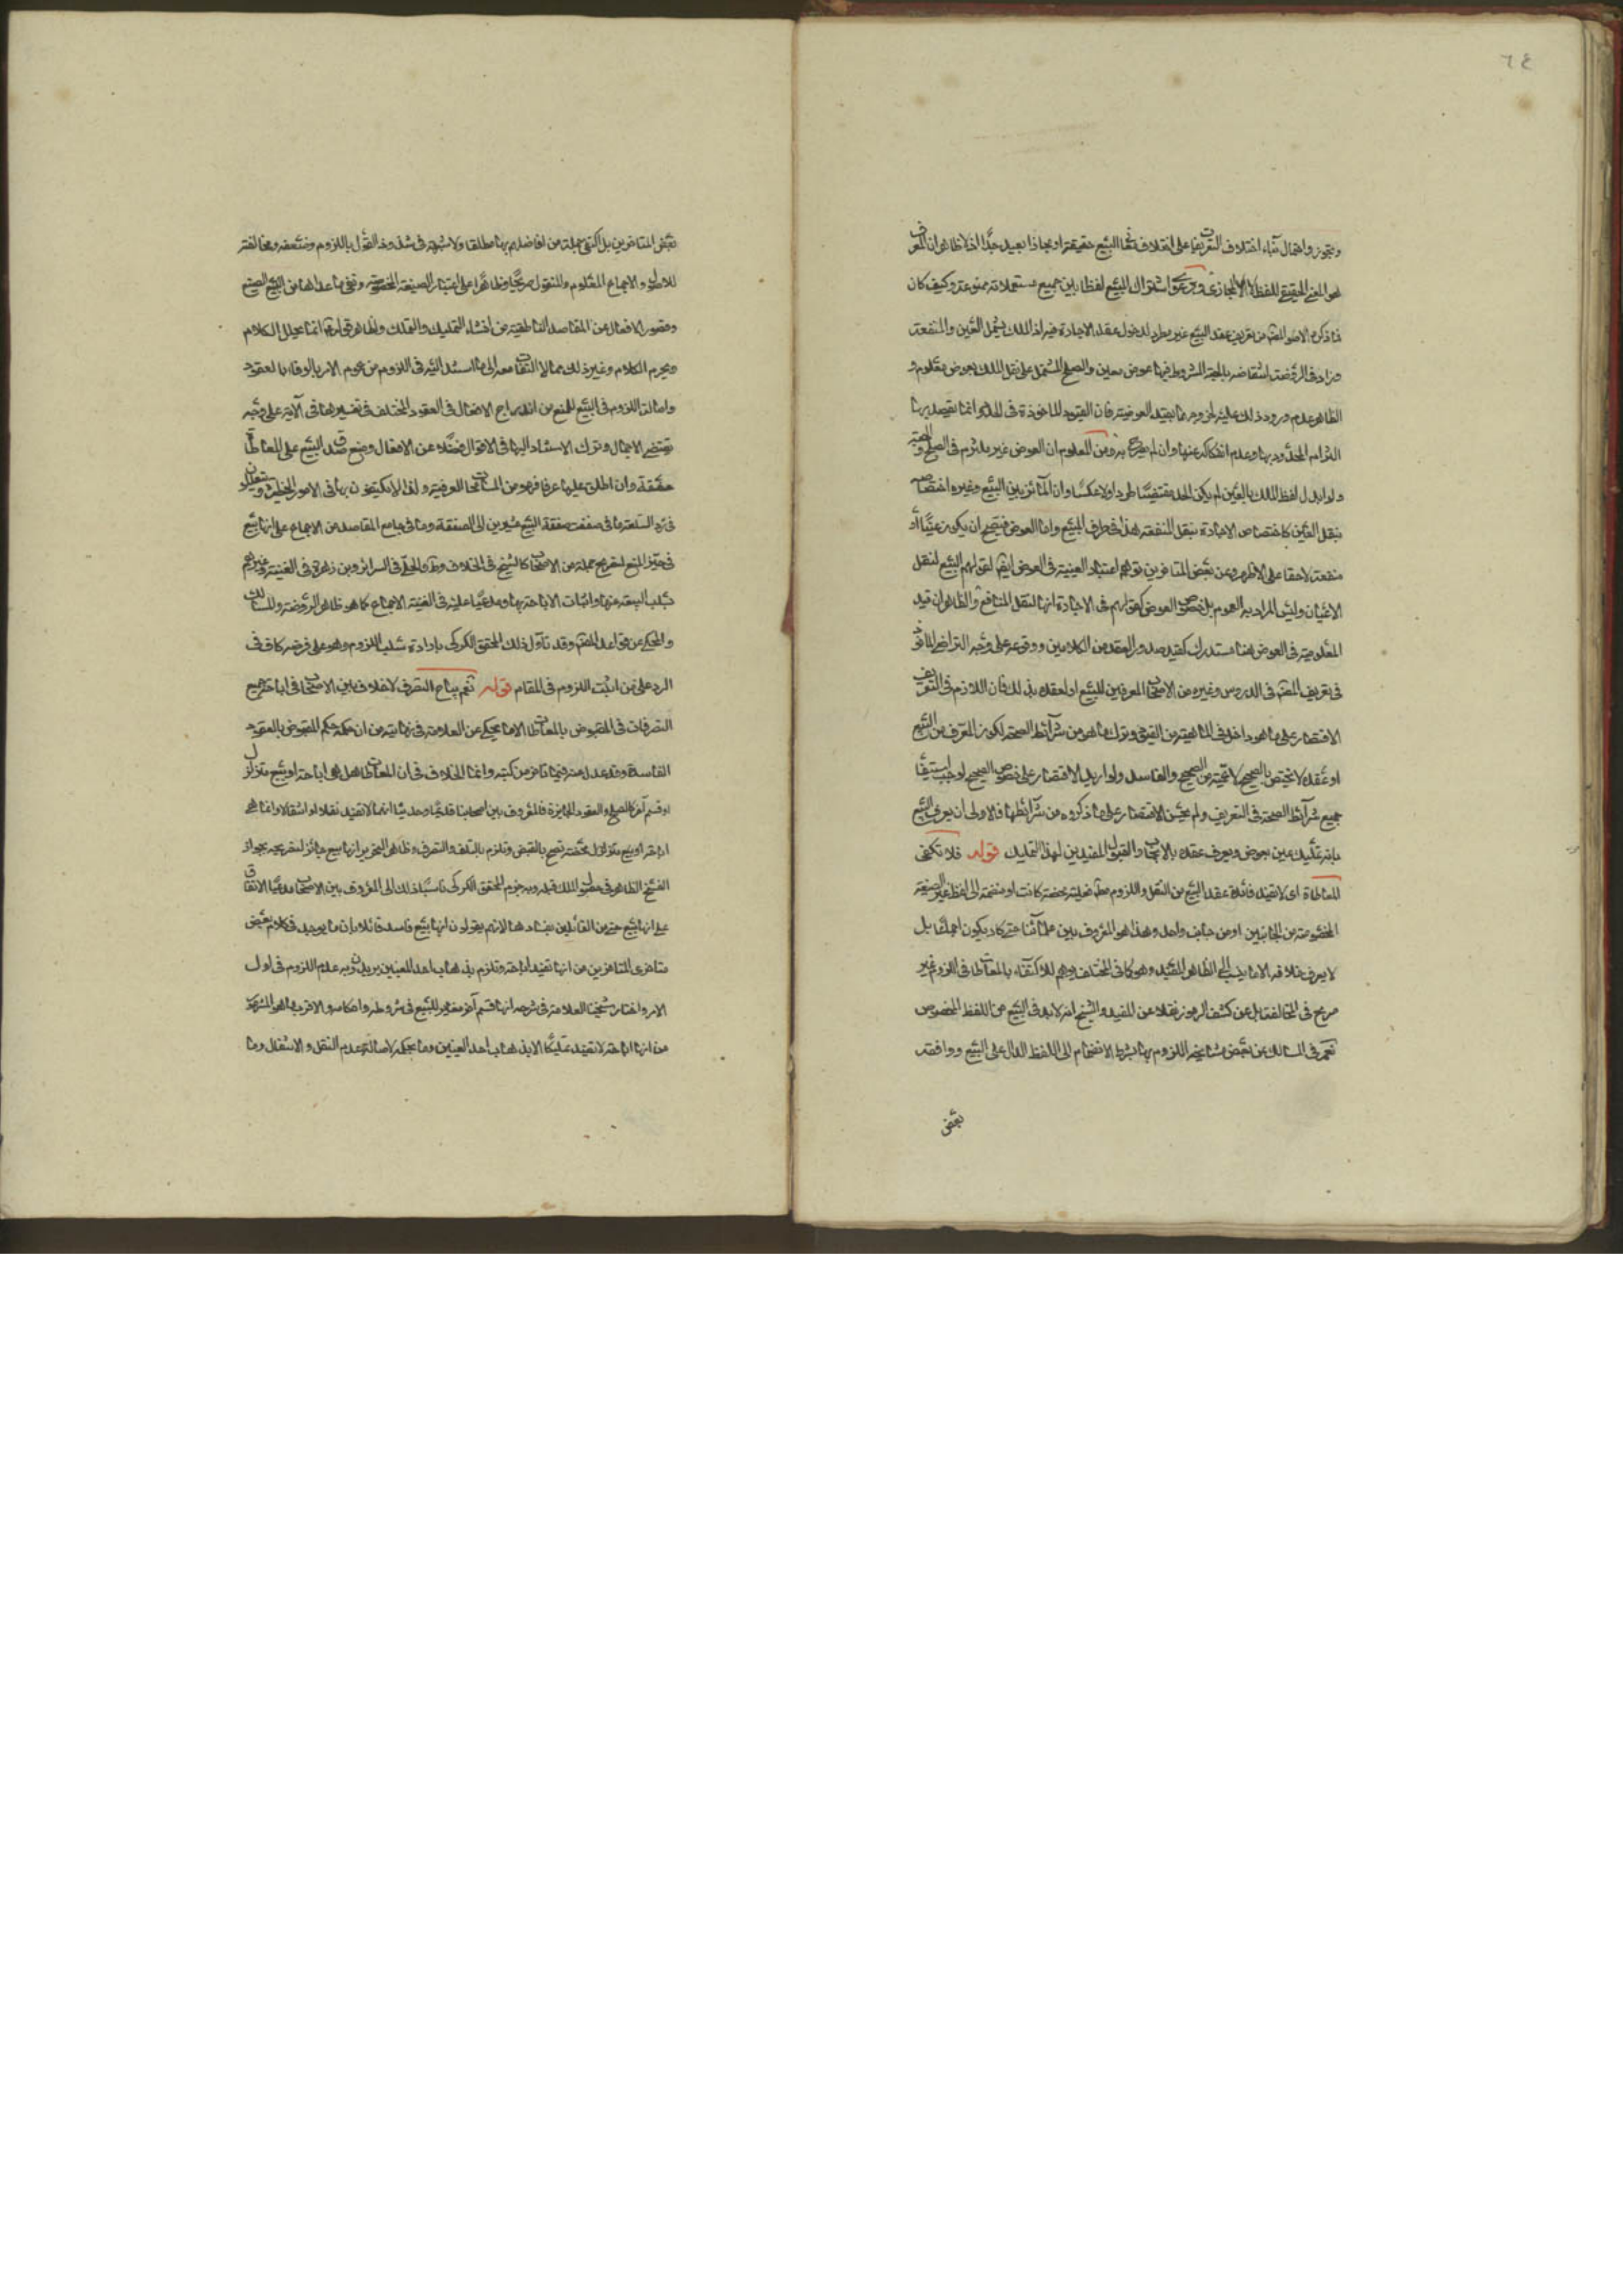 ٦٤
وتجوز واحتمال بناء اختلاف التعريفات على اختلاف البيع حقيقة او مجازا بعيد جدا اذ لا ظاهر ان المعرف
هو المعنى الحقيقي للفظ لا المجازي ودعوى اشتراك البيع لفظا بين جميع مستعملاته ممنوعة وكيف كان
فما ذكره المصنف من تعريف عقد البيع غير مطرد لدخول عقد الاجارة فيه اذ الملك يشمل العين والمنفعة
وزاد في الروضة انتقاضه بالهبة المشروط فيها عوض معين والصلح المشتمل على نقل الملك بعوض معلوم و
الظاهر عدم ورود ذلك عليه لخروجهما بقيد العوضية فان القيود المأخوذة في الحد انما يقصد بها
التزام المحدود بها وعدم انفكاكه عنها وان لم يصرح به ومن المعلوم ان العوض غير ملتزم في الصلح والهبة
ولو ابدل لفظ الملك بالعين لم يكن الحد منتقضا طردا ولا عكسا وان المائز بين البيع وغيره اختصاصه
بنقل العين كاختصاص الاجارة بنقل المنفعة هذا في طرف المبيع واما العوض فيصح ان يكون عينا او
منفعة لاحقا على الاظهر وعن بعض المتأخرين توهم اعتبار العينية في العوض ايضا لقولهم البيع لنقل
الاعيان وليس المراد به العموم بل خصوص العوض كقولهم في الاجارة انها لنقل المنافع والظاهر ان قيد
المعلومية في العوض هنا مستدرك كقيد صدور العقد من الكاملين ووقوعه على وجه التراضي المأخوذ
في تعريف المصنف في الدروس وغيره من الاصحاب المعرفين للبيع او لعقده بذلك فان اللازم في التعريف
الاقتصار على ما هو داخل في الماهية من القيود وترك ما هو من شرائط الصحة لكون المعرف من البيع
او عقده لا يختص بالصحيح لا عمية من الصحيح والفاسد ولو اريد الاقتصار على خصوص الصحيح لوجب استيفاء
جميع شرائط الصحة في التعريف ولم يحسن الاقتصار على ما ذكروه من شرائطها فالاولى ان يعرف البيع
بانه تمليك عين بعوض ويعرف عقده بالايجاب والقبول المفيدين لهذا التمليك قوله فلا تكفي
المعاطاة اى لا تفيد فائدة عقد البيع من النقل واللزوم فعلية محضة كانت او منضمة الى لفظ غير الصيغة
المخصوصة من الجانبين او من جانب واحد وهذا هو المعروف بين علمائنا حتى كاد يكون اجماعا بل
لا يعرف خلافه الا ما ينسب الى الظاهر المفيد وهو كما في المختلف يوهم للاكتفاء بالمعاطاة في اللزوم غير
صريح في المخالفة بل عن كشف الرموز نقلا عن المفيد والشيخ انه لا بد في البيع من اللفظ المخصوص
نعم في المسالك عن بعض مشايخه اللزوم بها بشرط الانضمام الى اللفظ الدال على البيع ووافقه
بعض
بعض المتأخرين بل اكتفى جملة من افاضلهم بها مطلقا ولا شبهة في شذوذ القول باللزوم وضعفه ومخالفته
للاصول والاجماع المعلوم والمنقول صريحا وظاهرا على اعتبار الصيغة المخصوصة ونفي ما عداها من البيع الصحيح
وقصور الافعال عن المقاصد الباطنية من انشاء التمليك والتملك والظاهر قوله انما يحلل الكلام
ويحرم الكلام وغير ذلك مما لا التفات معه الى ما استند اليه في اللزوم من عموم الامر بالوفاء بالعقود
واصالة اللزوم في البيع للمنع من اندراج الافعال في العقود المختلف في تفسيرها في الآية على وجه
يقتضي الاجمال وترك الاستناد اليها في الاقوال فضلا عن الافعال ومنع صدق البيع على المعاطاة
حقيقة وان اطلق عليها عرفا فهو من المسامحات العرفية ولذا لا يكتفون بها في الامور الخطيرة
في رد السلعة ما في صفقت صفقة البيع مشيرين الى الصفقة وما في جامع المقاصد من الاجماع على انها بيع
في حيز المنع لتصريح جملة من الاصحاب كالشيخ في الخلاف وط والحلي في السرائر وبن زهرة في الغنية وغيرهم
بسلب البيعية عنها واثبات الاباحة بها ومدعيا عليه في الغنية الاجماع كما هو ظاهر الروضة والمسالك
والمحكي عن قواعد المصنف وقد تأول ذلك المحقق الكركى بارادة سلب اللزوم وهو على فرضه كاف في
الرد على من اثبت اللزوم في المقام قوله نعم يباح التصرف لا خلاف بين الاصحاب في اباحة جميع
التصرفات في المقبوض بالمعاطاة الا ما يحكى عن العلامة في نهايته من ان حكمه حكم المقبوض بالعقود
الفاسدة وقد عدل عنه فيما تأخر من كتبه وانما الخلاف في ان المعاطاة هل هي اباحة او بيع متزلزل
او قسم آخر كالصلح والعقود الجائزة فالمعروف بين اصحابنا قديما وحديثا انها لا تفيد نقلا ولا انتقالا وانما هي
اباحة او بيع متزلزل بالقبض وتلزم بالتلف والتصرف وظاهر التحرير انها بيع جائز لتصريحه بجواز
الفسخ الظاهر في حصول الملك قبله وبه جزم المحقق الكركى ناسبا ذلك الى المعروف بين الاصحاب مدعيا الاتفاق
على انها بيع حتى من القائلين بفسادها لانهم يقولون انها بيع فاسد قائلا بان ما يوجد في كلام بعض
متأخرى المتأخرين من انها تفيد اباحة وتلزم بذهاب احد العينين يريدون به عدم اللزوم في اول
الامر واختار شيخنا العلامة في شرحه انها قسم آخر مغاير للبيع في شروطه واحكامه والاقرب ما هو المشهور
من انها اباحة لا تفيد تمليكا الا بذهاب احد العينين وما بحكمه لاصالة عدم النقل والانتقال وما